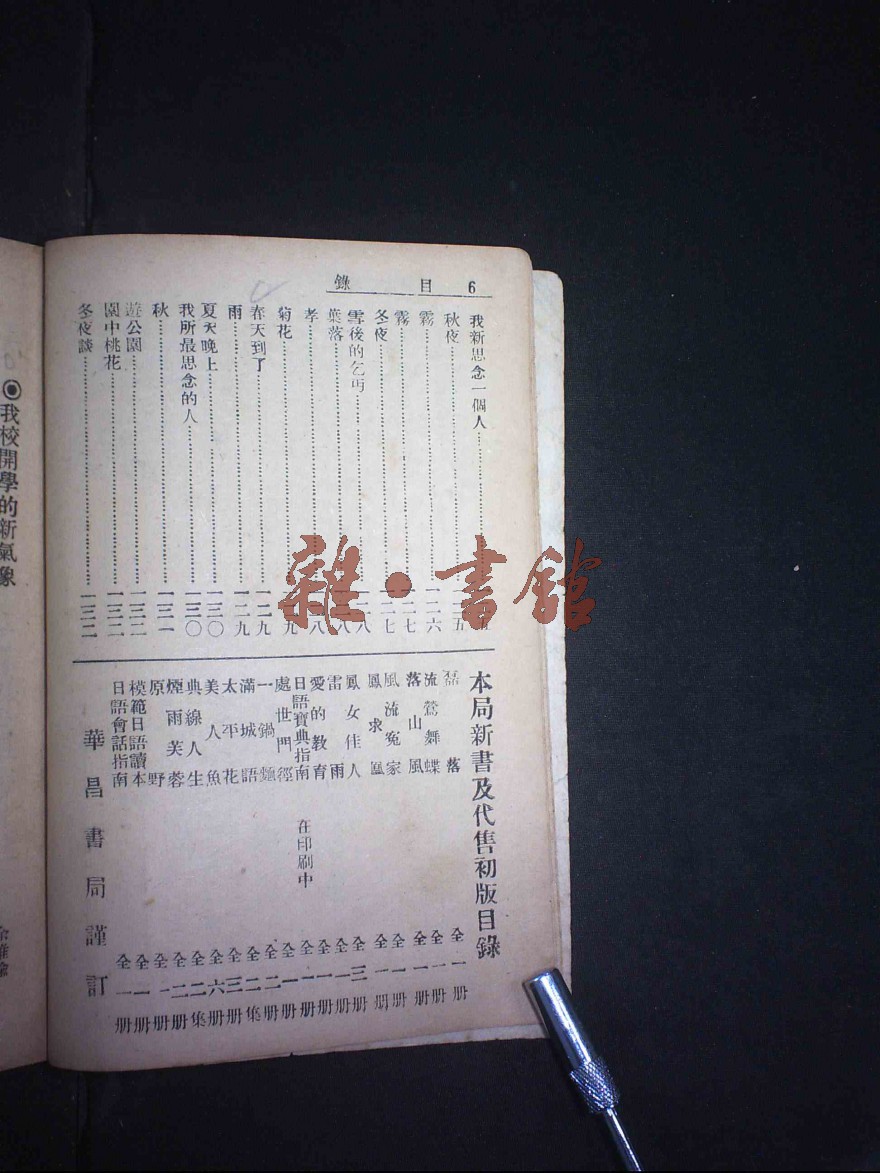 目錄 6
我新思念一個人
秋夜
霧 一二六
霧 一二七
冬夜 一二七
雪後的乞丐
葉落
孝
菊花
春天到了 一二九
雨 一二九
夏天晚上 一三〇
我所最思念的人 一三〇
秋 一三一
遊公園 一三二
園中桃花 一三二
冬夜談 一三二
本局新書及代售初版目錄
磊落 全一册
流鶯舞蝶 全一册
落山風 全一册
風流冤家 全一册
鳳求凰 全一册
鳳女佳人 全三册
雷雨 全一册
愛的教育 全一册
日語寶典指南 在印刷中 全一册
處世門徑 全一册
一鍋麵 全二册
滿城語 全二集
太平花 全三册
美人魚 全六册
典線人生 全二集
煙雨芙蓉 全二册
原野 全一册
模範日語讀本 全一册
日語會話指南 全一册
華昌書局謹訂
◉我校開學的新氣象
雜·書館